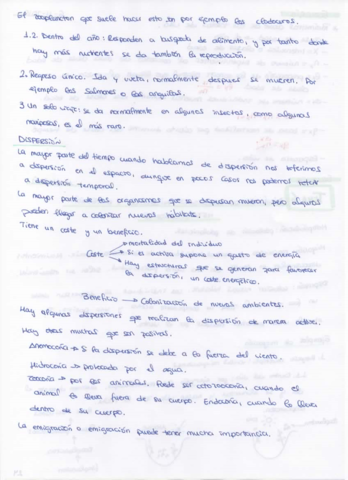 El zooplancton que suele hacer esto son por ejemplo los cladoceros.
1.2. Dentro del año: Responden a búsqueda de alimento, y por tanto donde
hay más nutrientes se da también la reproducción.
2. Regreso único. Ida y vuelta, normalmente después se mueren. Por
ejemplo los salmones o las anguilas.
3 Un solo viaje: se da normalmente en algunos insectos, como algunas
mariposas, es el más raro.
DISPERSIÓN
La mayor parte del tiempo cuando hablamos de dispersión nos referimos
a dispersión en el espacio, aunque en pocos casos no podemos referir
a dispersión temporal.
La mayor parte de los organismos que se dispersan mueren, pero algunos
pueden llegar a colonizar nuevos hábitats.
Tiene un coste y un beneficio.
→ mortalidad del individuo
Coste → Si es activa supone un gasto de energía
→ Hay estructuras que se generan para favorecer
la dispersión, un coste energético.
Beneficio → Colonización de nuevos ambientes.
Hay algunas dispersiones que realizan la dispersión de manera activa.
Hay otras muchas que son pasivas.
Anemocoria → Si la dispersión se debe a la fuerza del viento.
Hidrocoria → provocado por el agua.
Zoocoria → por los animales. Puede ser ectozoocoria, cuando el
animal lo lleva fuera de su cuerpo. Endozoo, cuando lo lleva
dentro de su cuerpo.
La emigración o inmigración puede tener mucha importancia.